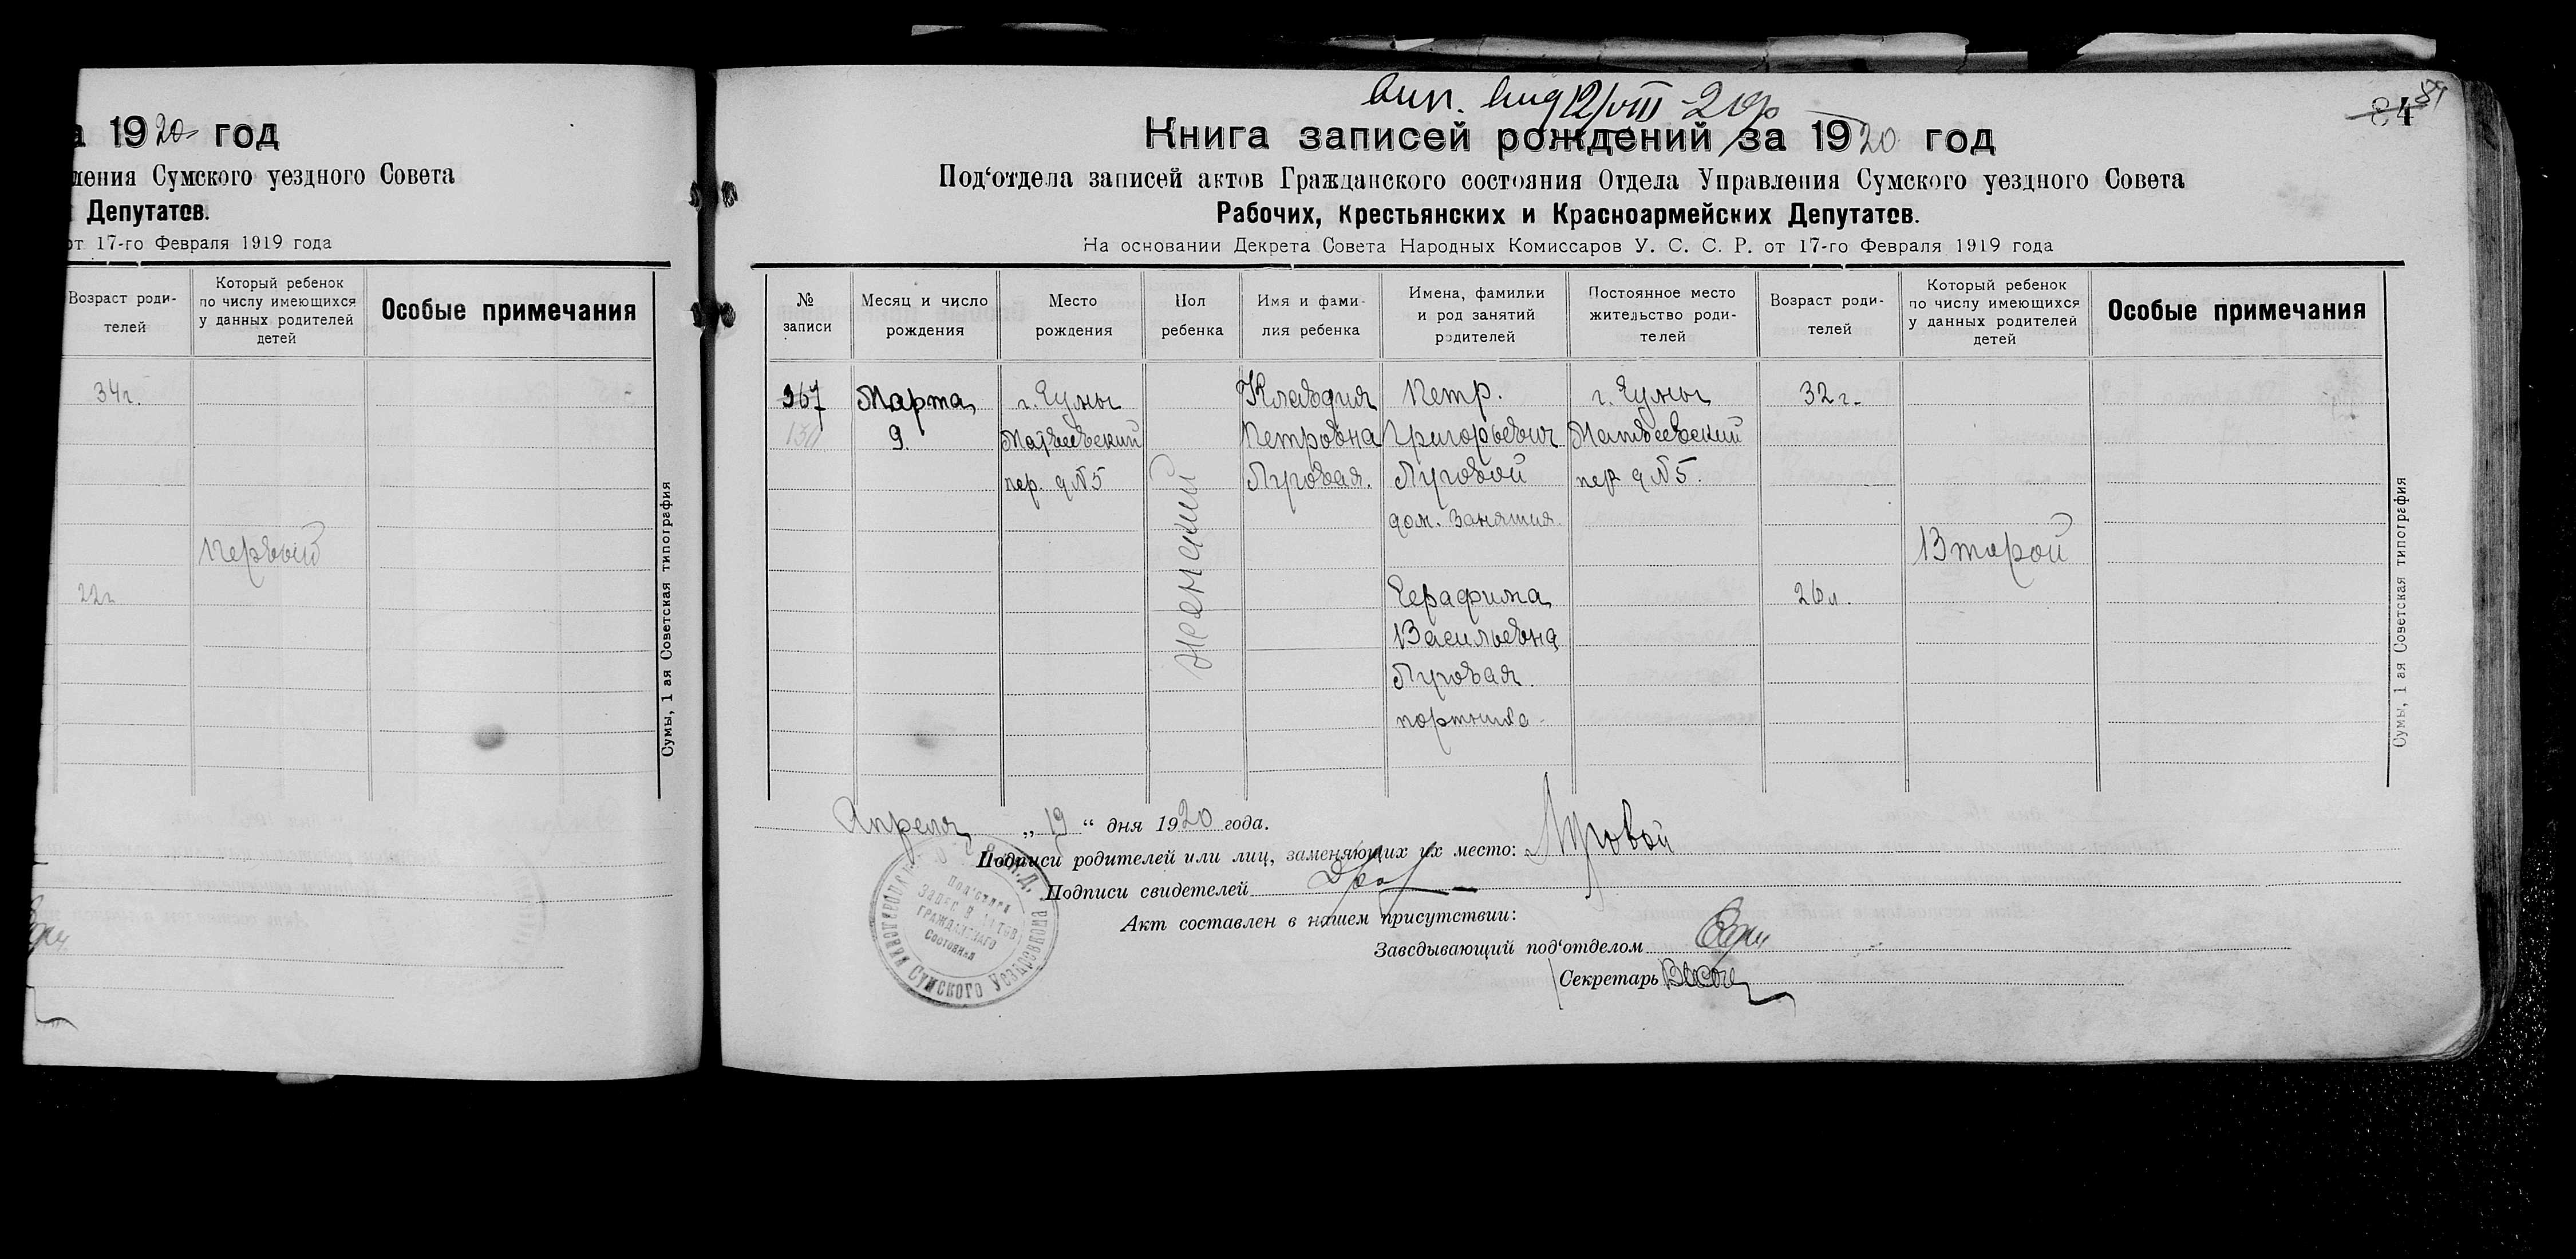 а 1920 год
ления Сумского уездного Совета
Депутатов.
от 17-го Февраля 1919 года
Возраст роди-
телей
Который ребенок
по числу имеющихся
у данных родителей
детей
Особые примечания
34г.
Первый
22г
Сумы, 1 ая Советская типография
12/VIII-20
84
Книга записей рождений за 1920 год
Под‘отдела записей актов Гражданского состояния Отдела Управления Сумского уездного Совета
Рабочих, Крестьянских и Красноармейских Депутатов.
На основании Декрета Совета Народных Комиссаров У. С. С. Р. от 17-го Февраля 1919 года
№
записи
Месяц и число
рождения
Место
рождения
Пол
ребенка
Имя и фами-
лия ребенка
Имена, фамилии
и род занятий
родителей
Постоянное место
жительство роди-
телей
Возраст роди-
телей
Который ребенок
по числу имеющихся
у данных родителей
детей
Особые примечания
367
Марта
9
г. Сумы
Матвеевский
пер. д №5
Женский
Клавдия
Петровна
Луговая.
Петр.
Григорьевич
Луговой
дом. занятия.
Серафима
Васильевна
Луговая.
портниха
г. Сумы
Матвеевский
пер д №5.
32 г.
26 л.
Второй
Апреля „ 19 “ дня 1920 года.
Подписи родителей или лиц, заменяющих их место: Луговой
Подписи свидетелей
Акт составлен в нашем присутствии:
Заведывающий под‘отделом
Секретарь
Под‘отдел
Записи Актов
Гражданскаго
Состояния
Сумского
Сумы, 1 ая Советская типография